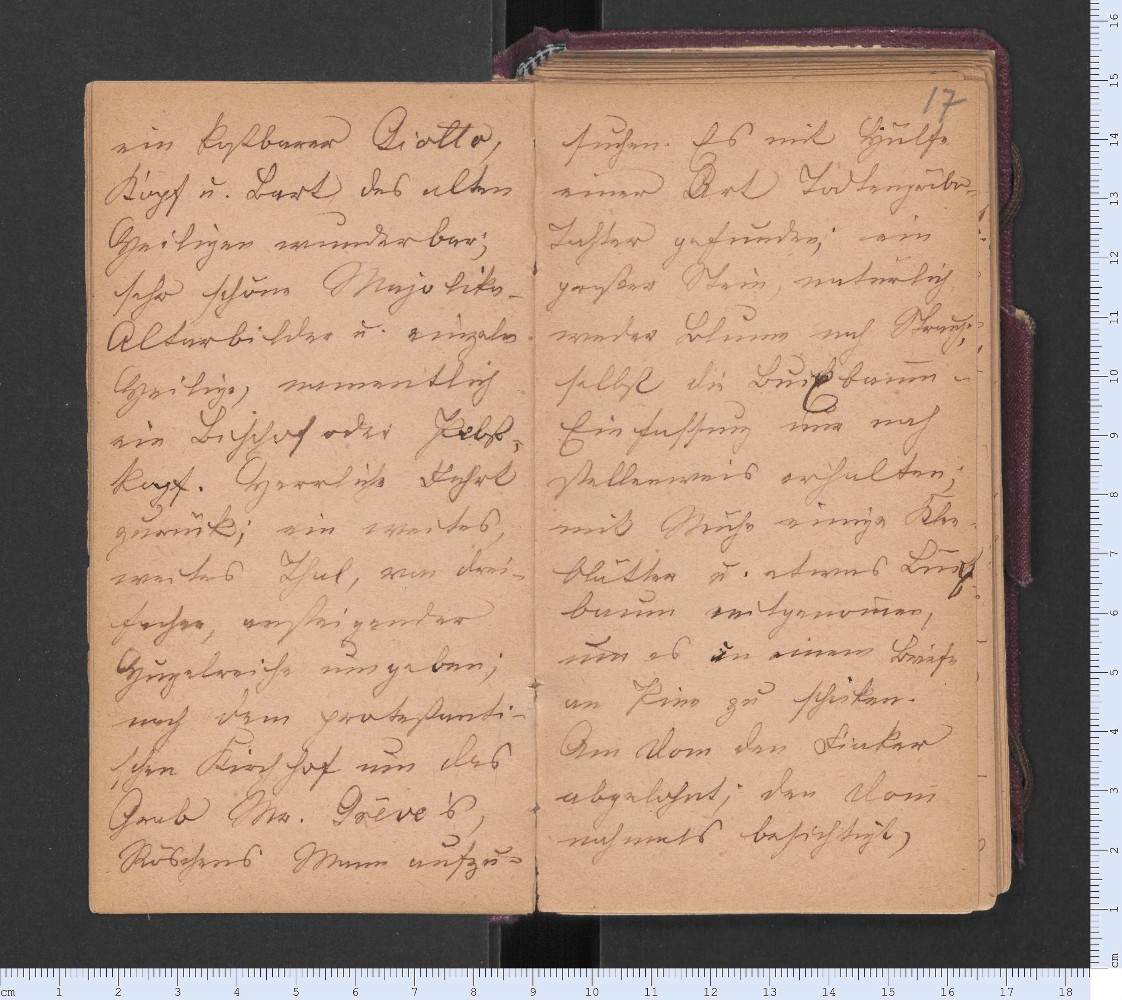 ein kostbarer Giotto,
Kopf u. Bart des alten
Heiligen wunderbar;
sehr schöne Majolika-
Altarbilder u. einzelne
Heilige, namentlich
ein Bischof oder Pabst-
kopf. Herrliche Fahrt
zurück; ein weites,
weites Thal, von drei-
facher, ansteigender
Hügelreihe umgeben;
nach dem protestanti-
schen Kirchhof um das
Grab Mr. Grēve's,
Röschens Mann aufzu-
17
suchen. Es mit Hülfe
einer Art Todtengräber-
Tochter gefunden; ein
großer Stein, natürlich
weder Blume noch Strauch,
selbst die Buxbaum-
Einfassung nur noch
stellenweis erhalten;
mit Mühe einige Klee-
blätter u. etwas Bux-
baum mitgenom̄en,
um es in einem Briefe
an Fine zu schicken.
Am Dom den Fiaker
abgelohnt; den Dom
nochmals besichtigt,